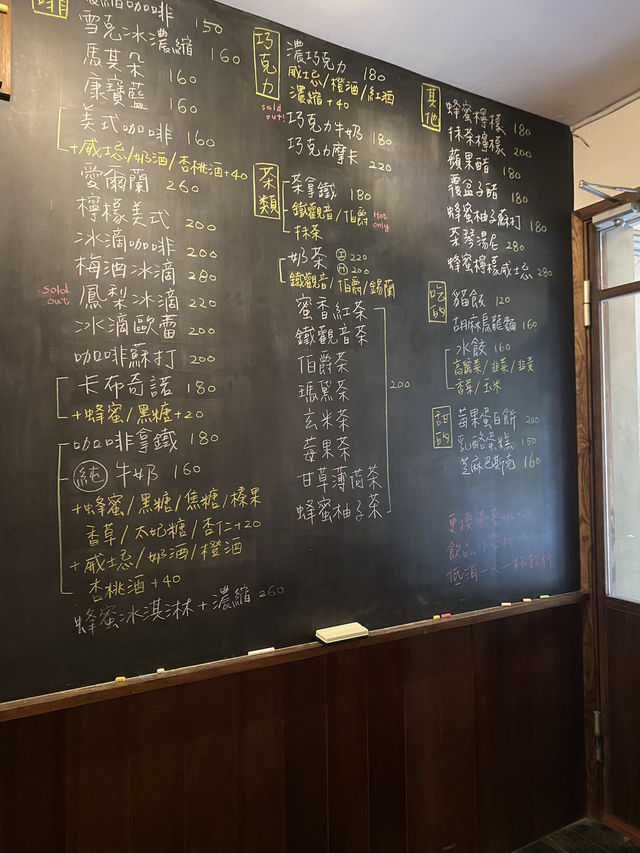 啡
濃縮咖啡 150
雪克冰濃縮 160
馬其朵 160
康寶藍 160
美式咖啡 160
+威士忌/奶酒/杏桃酒+40
愛爾蘭 260
檸檬美式 200
冰滴咖啡 200
梅酒冰滴 280
sold out 鳳梨冰滴 220
冰滴歐蕾 200
咖啡蘇打 200
卡布奇諾 180
+蜂蜜/黑糖+20
咖啡拿鐵 180
純 牛奶 160
+蜂蜜/黑糖/焦糖/榛果
香草/太妃糖/杏仁+20
+威士忌/奶酒/橙酒
杏桃酒+40
蜂蜜冰淇淋+濃縮 260
巧克力
濃巧克力 180
威士忌/橙酒/紅酒
濃縮+40
sold out! 巧克力牛奶 180
巧克力摩卡 220
茶類
茶拿鐵 180
鐵觀音/伯爵 Hot only
抹茶
奶茶 220
200
鐵觀音/伯爵/錫蘭
蜜香紅茶
鐵觀音茶
伯爵茶
瑪黛茶
玄米茶
莓果茶
甘草薄荷茶
蜂蜜柚子茶
200
其他
蜂蜜檸檬 180
抹茶檸檬 200
蘋果醋 180
覆盆子醋 180
蜂蜜柚子蘇打 180
茶琴湯尼 280
蜂蜜檸檬威士忌 280
吃的
貓飯 120
胡麻烏龍麵 160
水餃 160
高麗菜/韭菜/韭黃
香菜/玉米
甜的
莓果蛋白餅 200
乳酪蛋糕 150
芝麻巴斯克 160
更換燕麥奶+20
飲品
低消一人一杯飲料